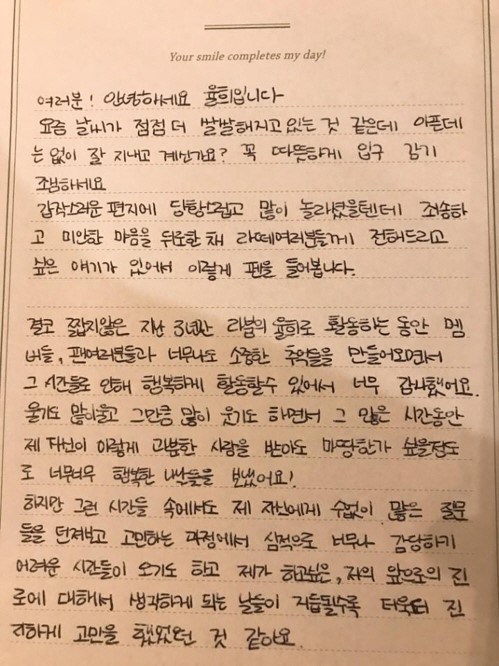 Your smile completes my day!
여러분! 안녕하세요 율희입니다
요즘 날씨가 점점 더 쌀쌀해지고있는 것 같은데 아픈데
는 없이 잘 지내고 계신가요? 꼭 따뜻하게 입구 감기
조심하세요
갑작스러운 편지에 당황스럽고 많이 놀라셨을텐데 죄송하
고 미안한 마음을 뒤로한 채 라떼여러분들께 전해드리고
싶은 얘기가 있어서 이렇게 펜을 들어봅니다.
결코 짧지않은 지난 3년간 라붐의 율희로 활동하는 동안 멤
버들, 팬여러분들과 너무나도 소중한 추억들을 만들어오면서
그 시간들로 인해 행복하게 활동할수 있어서 너무 감사했어요.
울기도 많이울고 그만큼 많이 웃기도 하면서 그 많은 시간동안
제 자신이 이렇게 과분한 사랑을 받아도 마땅한가 싶을정도
로 너무너무 행복한 나날들을 보냈어요!
하지만 그런 시간들 속에서도 제 자신에게 수없이 많은 질문
들을 던져보고 고민하는 과정에서 심적으로 너무나 감당하기
어려운 시간들이 오기도 하고 제가 하고싶은, 저의 앞으로의 진
로에 대해서 생각하게 되는 날들이 거듭될수록 더욱더 진
지하게 고민을 했었던 것 같아요.